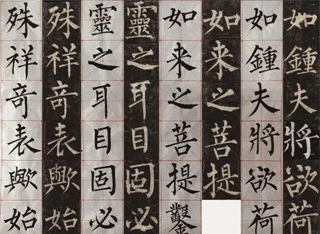 如鍾夫將欲荷
如鍾夫將欲荷
如来之菩提
如来之菩提鑿
靈之耳目固必
靈之耳目固必
殊祥竒表歟始
殊祥竒表歟始